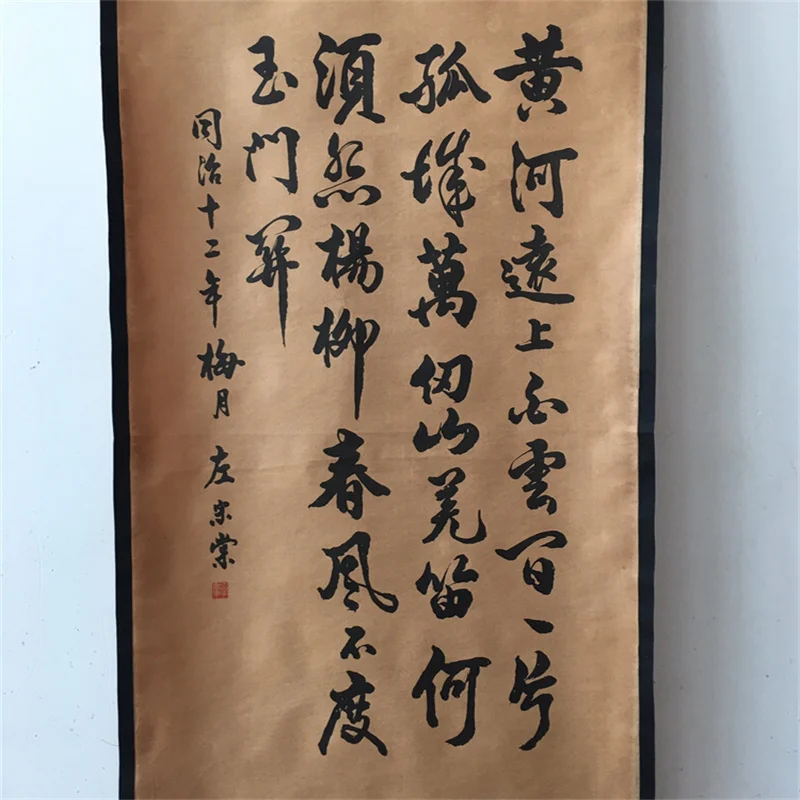 黄河遠上白雲間一片
孤城萬仞山羌笛何
須怨楊柳春風不度
玉門關
同治十二年梅月 左宗棠